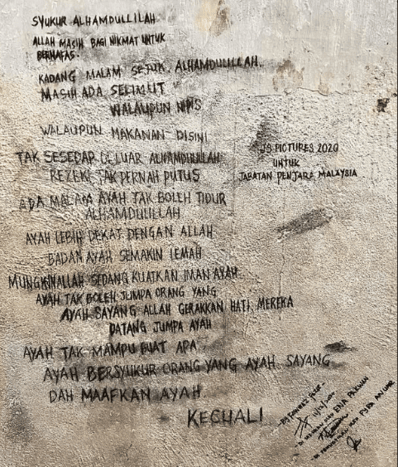 SYUKUR ALHAMDULLILAH
ALLAH MASIH BAGI NIKMAT UNTUK
BERNAFAS.
KADANG MALAM SEJUK. ALHAMDULILLAH.
MASIH ADA SELIMUT
WALAUPUN NIPIS
WALAUPUN MAKANAN DISINI
TAK SESEDAP DILUAR ALHAMDULILLAH
REZEKI TAK PERNAH PUTUS
ADA MALAM AYAH TAK BOLEH TIDUR
ALHAMDULILLAH
AYAH LEBIH DEKAT DENGAN ALLAH
BADAN AYAH SEMAKIN LEMAH
MUNGKIN ALLAH SEDANG KUATKAN IMAN AYAH
AYAH TAK BOLEH JUMPA ORANG YANG
AYAH SAYANG ALLAH GERAKKAN HATI MEREKA
DATANG JUMPA AYAH
AYAH TAK MAMPU BUAT APA
AYAH BERSYUKUR ORANG YANG AYAH SAYANG
DAH MAAFKAN AYAH.
KECHALI
JS PICTURES 2020
UNTUK
JABATAN PENJARA MALAYSIA